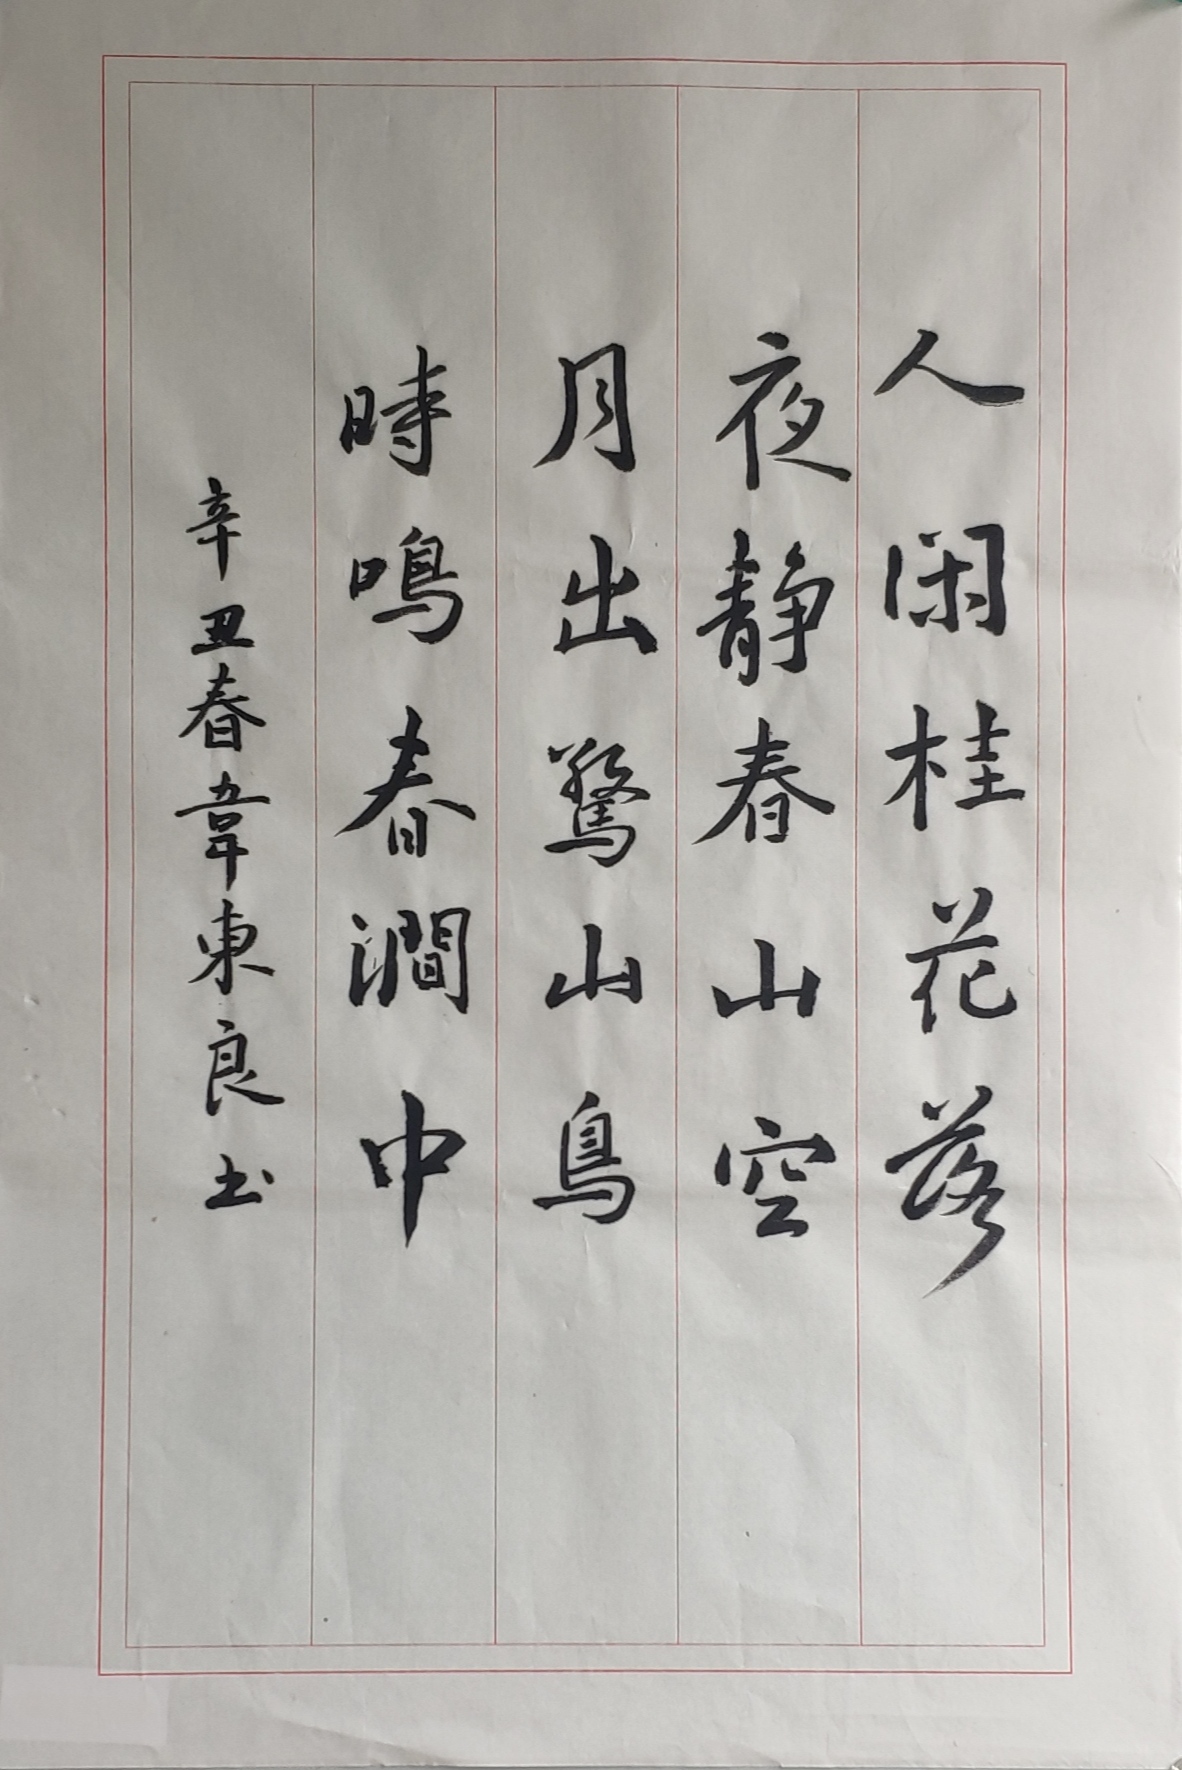 人闲桂花落
夜静春山空
月出驚山鳥
時鳴春澗中
辛丑春韋東良书